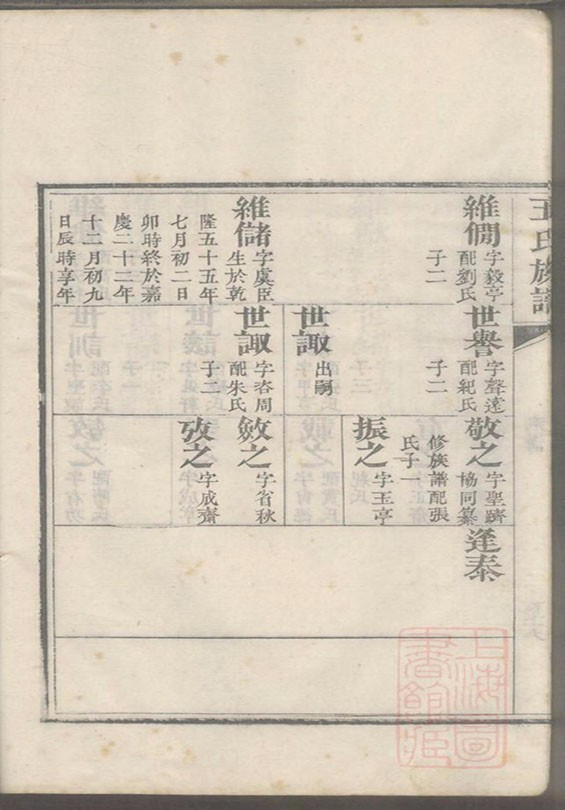 王氏族譜
維僩
字毅亭
配劉氏
子二
維儲
字虞臣
生於乾
隆五十五年
七月初二日
卯時終於嘉
慶二十二年
十二月初九
日辰時享年
世譽
字聲遠
配紀氏
子二
世諏
出嗣
世諏
字咨周
配朱氏
子二
敬之
字聖躋
協同纂
修族譜配張
氏子一
振之
字玉亭
斂之
字省秋
攷之
字成齋
逢泰
上海圖
書館藏